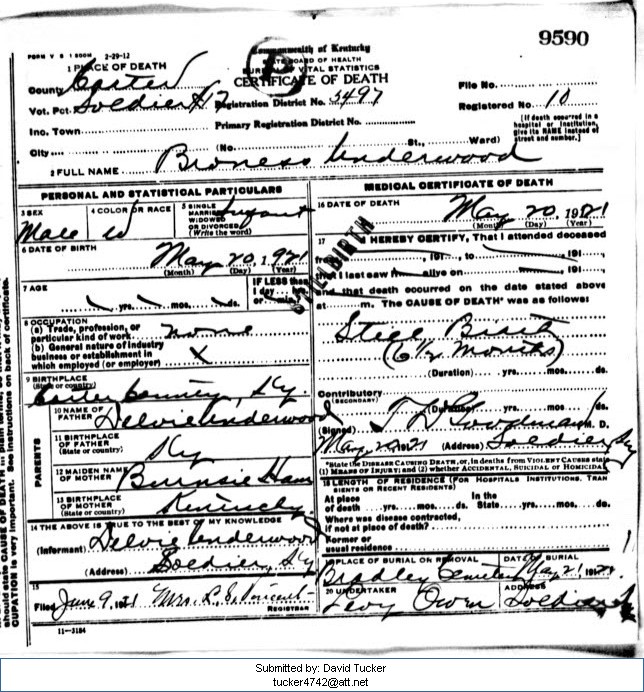 9590
FORM V S 1 500M 2-29-12
Commonwealth of Kentucky
STATE BOARD OF HEALTH
BUREAU OF VITAL STATISTICS
CERTIFICATE OF DEATH
1 PLACE OF DEATH
County Carter
Vot. Pct. Soldier #7 Registration District No. 5497
File No.
Registered No. 10
Inc. Town Primary Registration District No.
[If death occurred in a hospital or institution, give its NAME instead of street and number.]
City (No. St., Ward)
2 FULL NAME Broness Underwood
PERSONAL AND STATISTICAL PARTICULARS
3 SEX Male
4 COLOR OR RACE W
5 SINGLE MARRIED WIDOWED OR DIVORCED (Write the word) Infant
6 DATE OF BIRTH May 20, 1921
(Month) (Day) (Year)
7 AGE yrs. mos. ds.
IF LESS than 1 day hrs. or min.
8 OCCUPATION
(a) Trade, profession, or particular kind of work none
(b) General nature of industry business or establishment in which employed (or employer) X
9 BIRTHPLACE
(State or country) Carter County, Ky
PARENTS
10 NAME OF FATHER Delvie Underwood
11 BIRTHPLACE OF FATHER
(State or country) Ky
12 MAIDEN NAME OF MOTHER Burnsie Ham
13 BIRTHPLACE OF MOTHER
(State or country) Kentucky
14 THE ABOVE IS TRUE TO THE BEST OF MY KNOWLEDGE
(Informant) Delvie Underwood
(Address) Soldier, Ky
15
Filed June 9, 1921 Mrs. L. S.
REGISTRAR
11-3184
MEDICAL CERTIFICATE OF DEATH
16 DATE OF DEATH May 20, 1921
(Month) (Day) (Year)
STILL BIRTH
17 I HEREBY CERTIFY, That I attended deceased
from 191 , to 191 ,
that I last saw h alive on 191 ,
and that death occurred on the date stated above
at m. The CAUSE OF DEATH* was as follows:
Still Birth
(6 1/2 Months)
(Duration) yrs. mos. ds.
Contributory
(SECONDARY)
(Duration) yrs. mos. ds.
(Signed) M. D.
May 20 1921 (Address) Soldier Ky
*State the DISEASE CAUSING DEATH, or, in deaths from VIOLENT CAUSES state
(1) MEANS OF INJURY; and (2) whether ACCIDENTAL, SUICIDAL or HOMICIDAL
18 LENGTH OF RESIDENCE (FOR HOSPITALS INSTITUTIONS, TRANSIENTS OR RECENT RESIDENTS)
At place of death yrs. mos. ds. In the State yrs. mos. ds.
Where was disease contracted, if not at place of death?
Former or usual residence
19 PLACE OF BURIAL OR REMOVAL Bradley Cemetery
DATE OF BURIAL May 21 1921
20 UNDERTAKER Levy Owen
ADDRESS Soldier
should state CAUSE OF DEATH
CUPATION is very important. See instructions on back of certificate.
Submitted by: David Tucker
tucker4742@att.net